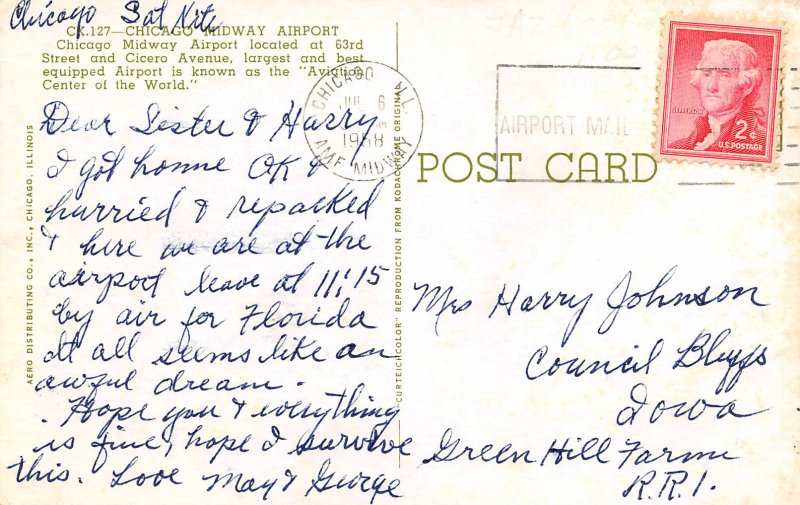 Chicago Sat Nite
CK.127—CHICAGO MIDWAY AIRPORT
Chicago Midway Airport located at 63rd
Street and Cicero Avenue, largest and best
equipped Airport is known as the "Aviation
Center of the World."
Dear Sister & Harry
I got home OK &
hurried & repacked
& here we are at the
airport leave at 11:15
by air for Florida
It all seems like an
awful dream.
Hope you & everything
is fine, hope I survive
this. Love May & George
AERO DISTRIBUTING CO., INC., CHICAGO, ILLINOIS
"CURTEICHCOLOR" REPRODUCTION FROM KODACHROME ORIGINAL
CHICAGO ILL
JUL 6
1958
AMF MIDWAY
AIRPORT MAIL
JEFFERSON
2¢
U.S. POSTAGE
POST CARD
Mrs Harry Johnson
Council Bluffs
Iowa
Green Hill Farm
R.R.1.